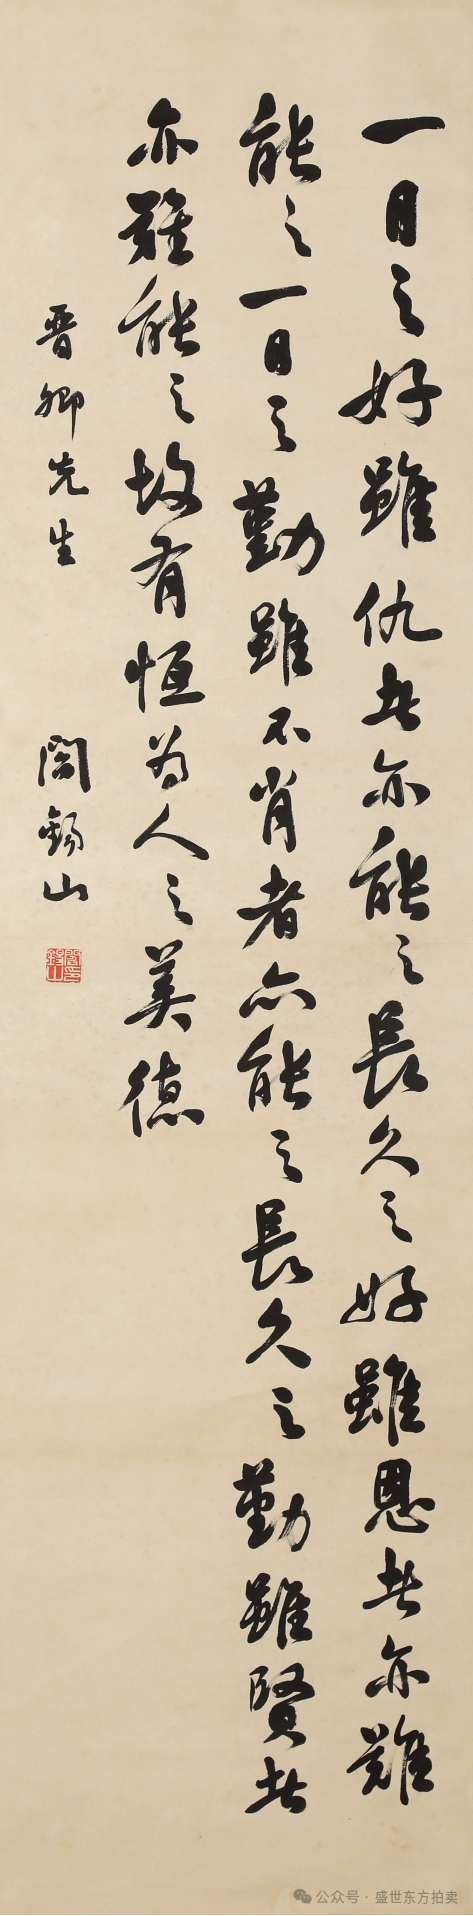 一日之好雖仇者亦能之長久之好雖恩者亦難
能之一日之勤雖不肖者亦能之長久之勤雖賢者
亦難能之故有恒為人之美德
晋卿先生
閻錫山
閻錫山印
公众号·盛世东方拍卖